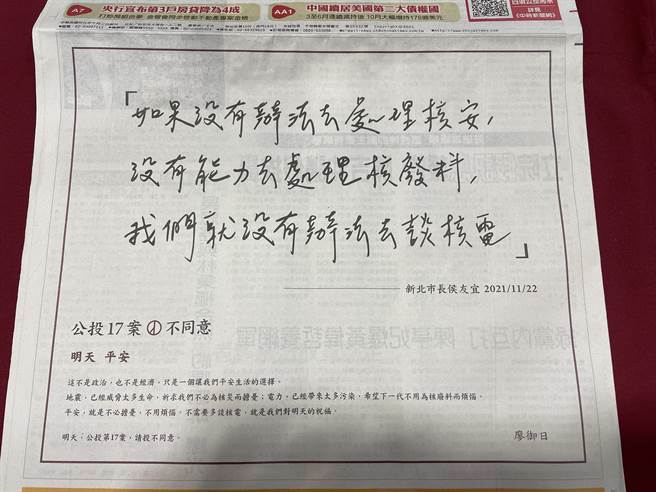 A7
央行宣布第3戶房貸降為4成
AA1
中國續居美國第二大債權國
「如果沒有辦法去處理核安,
沒有能力去處理核廢料,
我們就沒有辦法去談核電」
新北市長侯友宜 2021/11/22
公投17案 不同意
明天 平安
這不是政治，也不是經濟，只是一個讓我們平安生活的選擇。
地震，已經威脅太多生命，祈求我們不必為核災而擔憂；電力，已經帶來太多污染，希望下一代不用為核廢料而煩惱。
平安，就是不必擔憂，不用煩惱。不需要多談核電，就是我們對明天的祝福。
明天：公投第17案，請投不同意。
廖御日